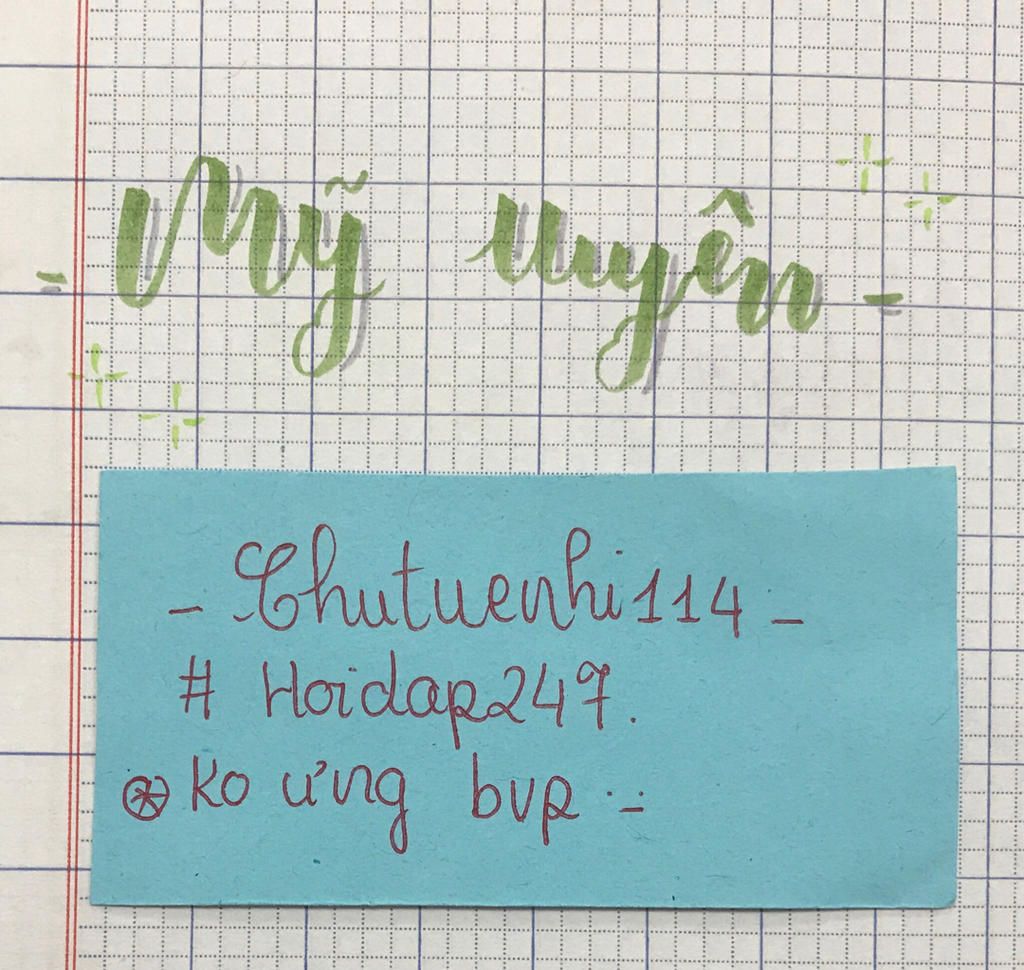 - Mỹ uyên -
- Chutuenhi114 -
# Hoidap247.
Ko ưng bvp